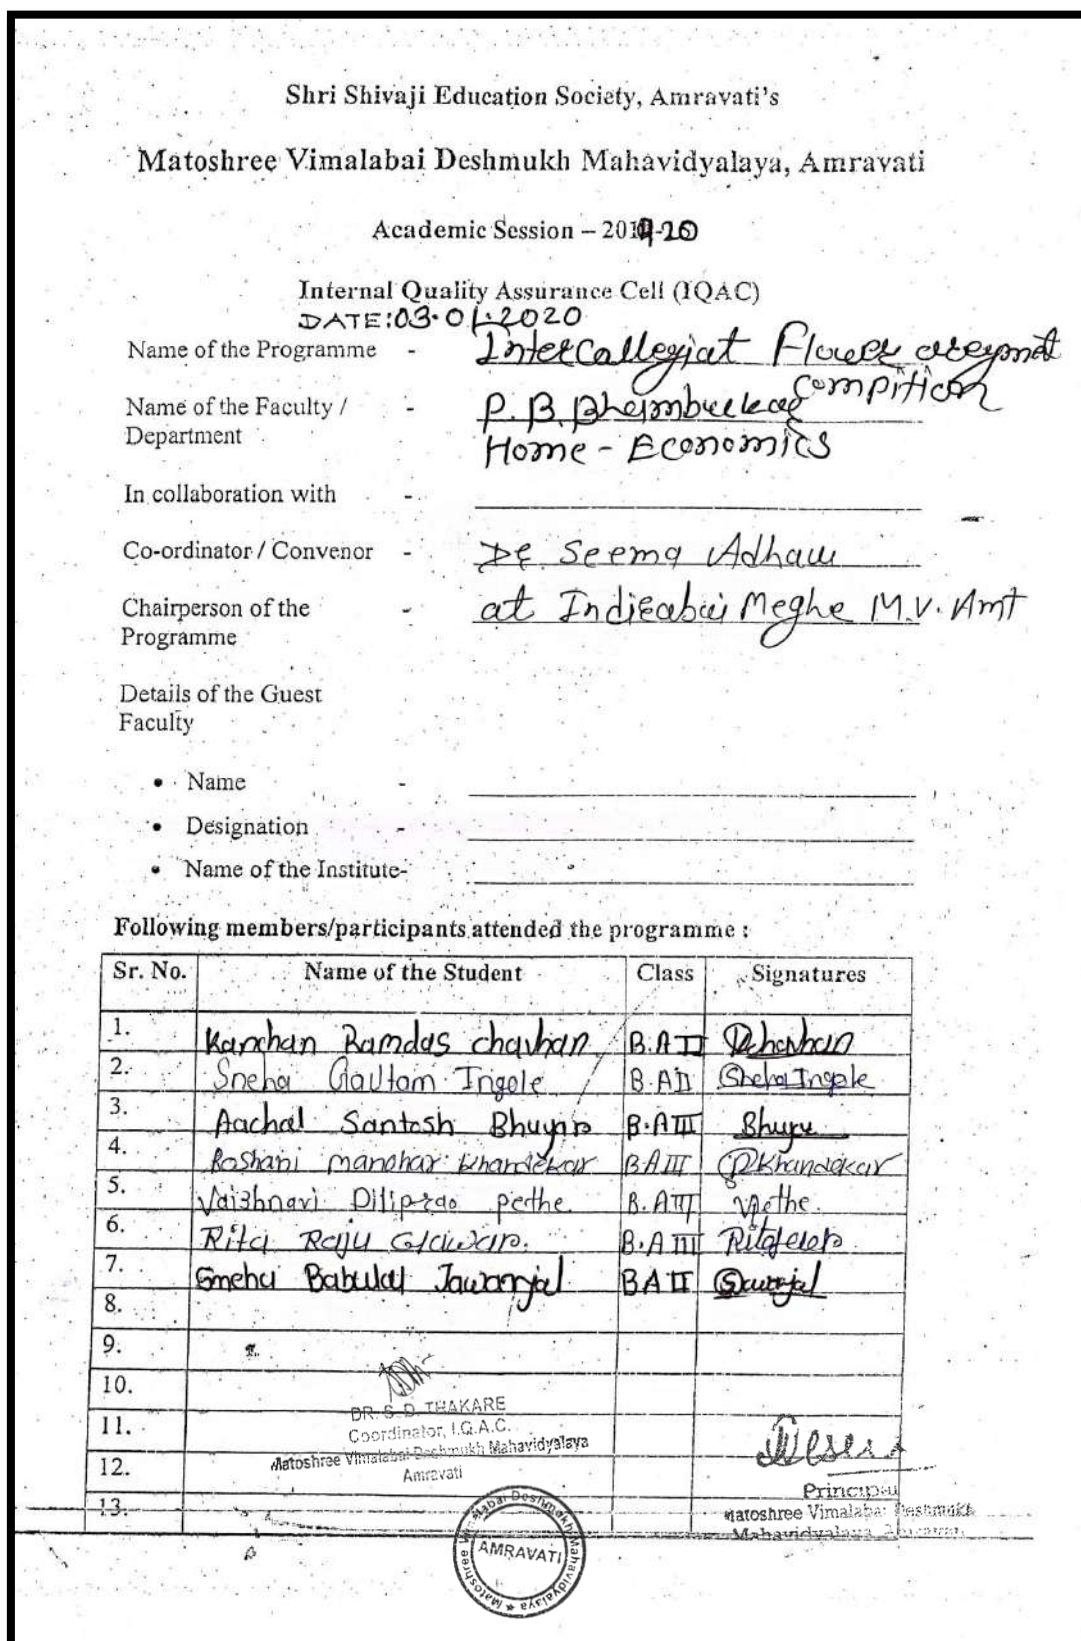 Shri Shivaji Education Society, Amravati's
Matoshree Vimalabai Deshmukh Mahavidyalaya, Amravati
Academic Session – 2019-20
Internal Quality Assurance Cell (IQAC)
DATE:03.01.2020
Name of the Programme - Intercollegiat Flower
Compition
Name of the Faculty / - P. B. 
Department Home - Economics
In collaboration with -
Co-ordinator / Convenor - Dr Seema Adhau
Chairperson of the - at Indirabai Meghe M.V. Amt
Programme
Details of the Guest
Faculty
• Name -
• Designation -
• Name of the Institute-
Following members/participants attended the programme :
Sr. No. Name of the Student Class Signatures
1. Kanchan Ramdas chavhan B.A II RChavhan
2. Sneha Gautam Ingole B.A II Sneha Ingole
3. Aachal Santosh Bhuyar B.A III
4. Roshani manohar khandekar B.A III RKhandekar
5. Vaishnavi Diliprao pethe B.A III Vpethe
6. Rita Raju B.A III
7. Sneha Babulal Jawanjal BA II
8.
9.
10.
DR. S. D. THAKARE
11. Coordinator, I.Q.A.C.
Matoshree Vimalabai Deshmukh Mahavidyalaya
12. Amravati
Principal
13. Matoshree Vimalabai Deshmukh
Mahavidyalaya, Amravati
Matoshree Vimalabai Deshmukh Mahavidyalaya
AMRAVATI